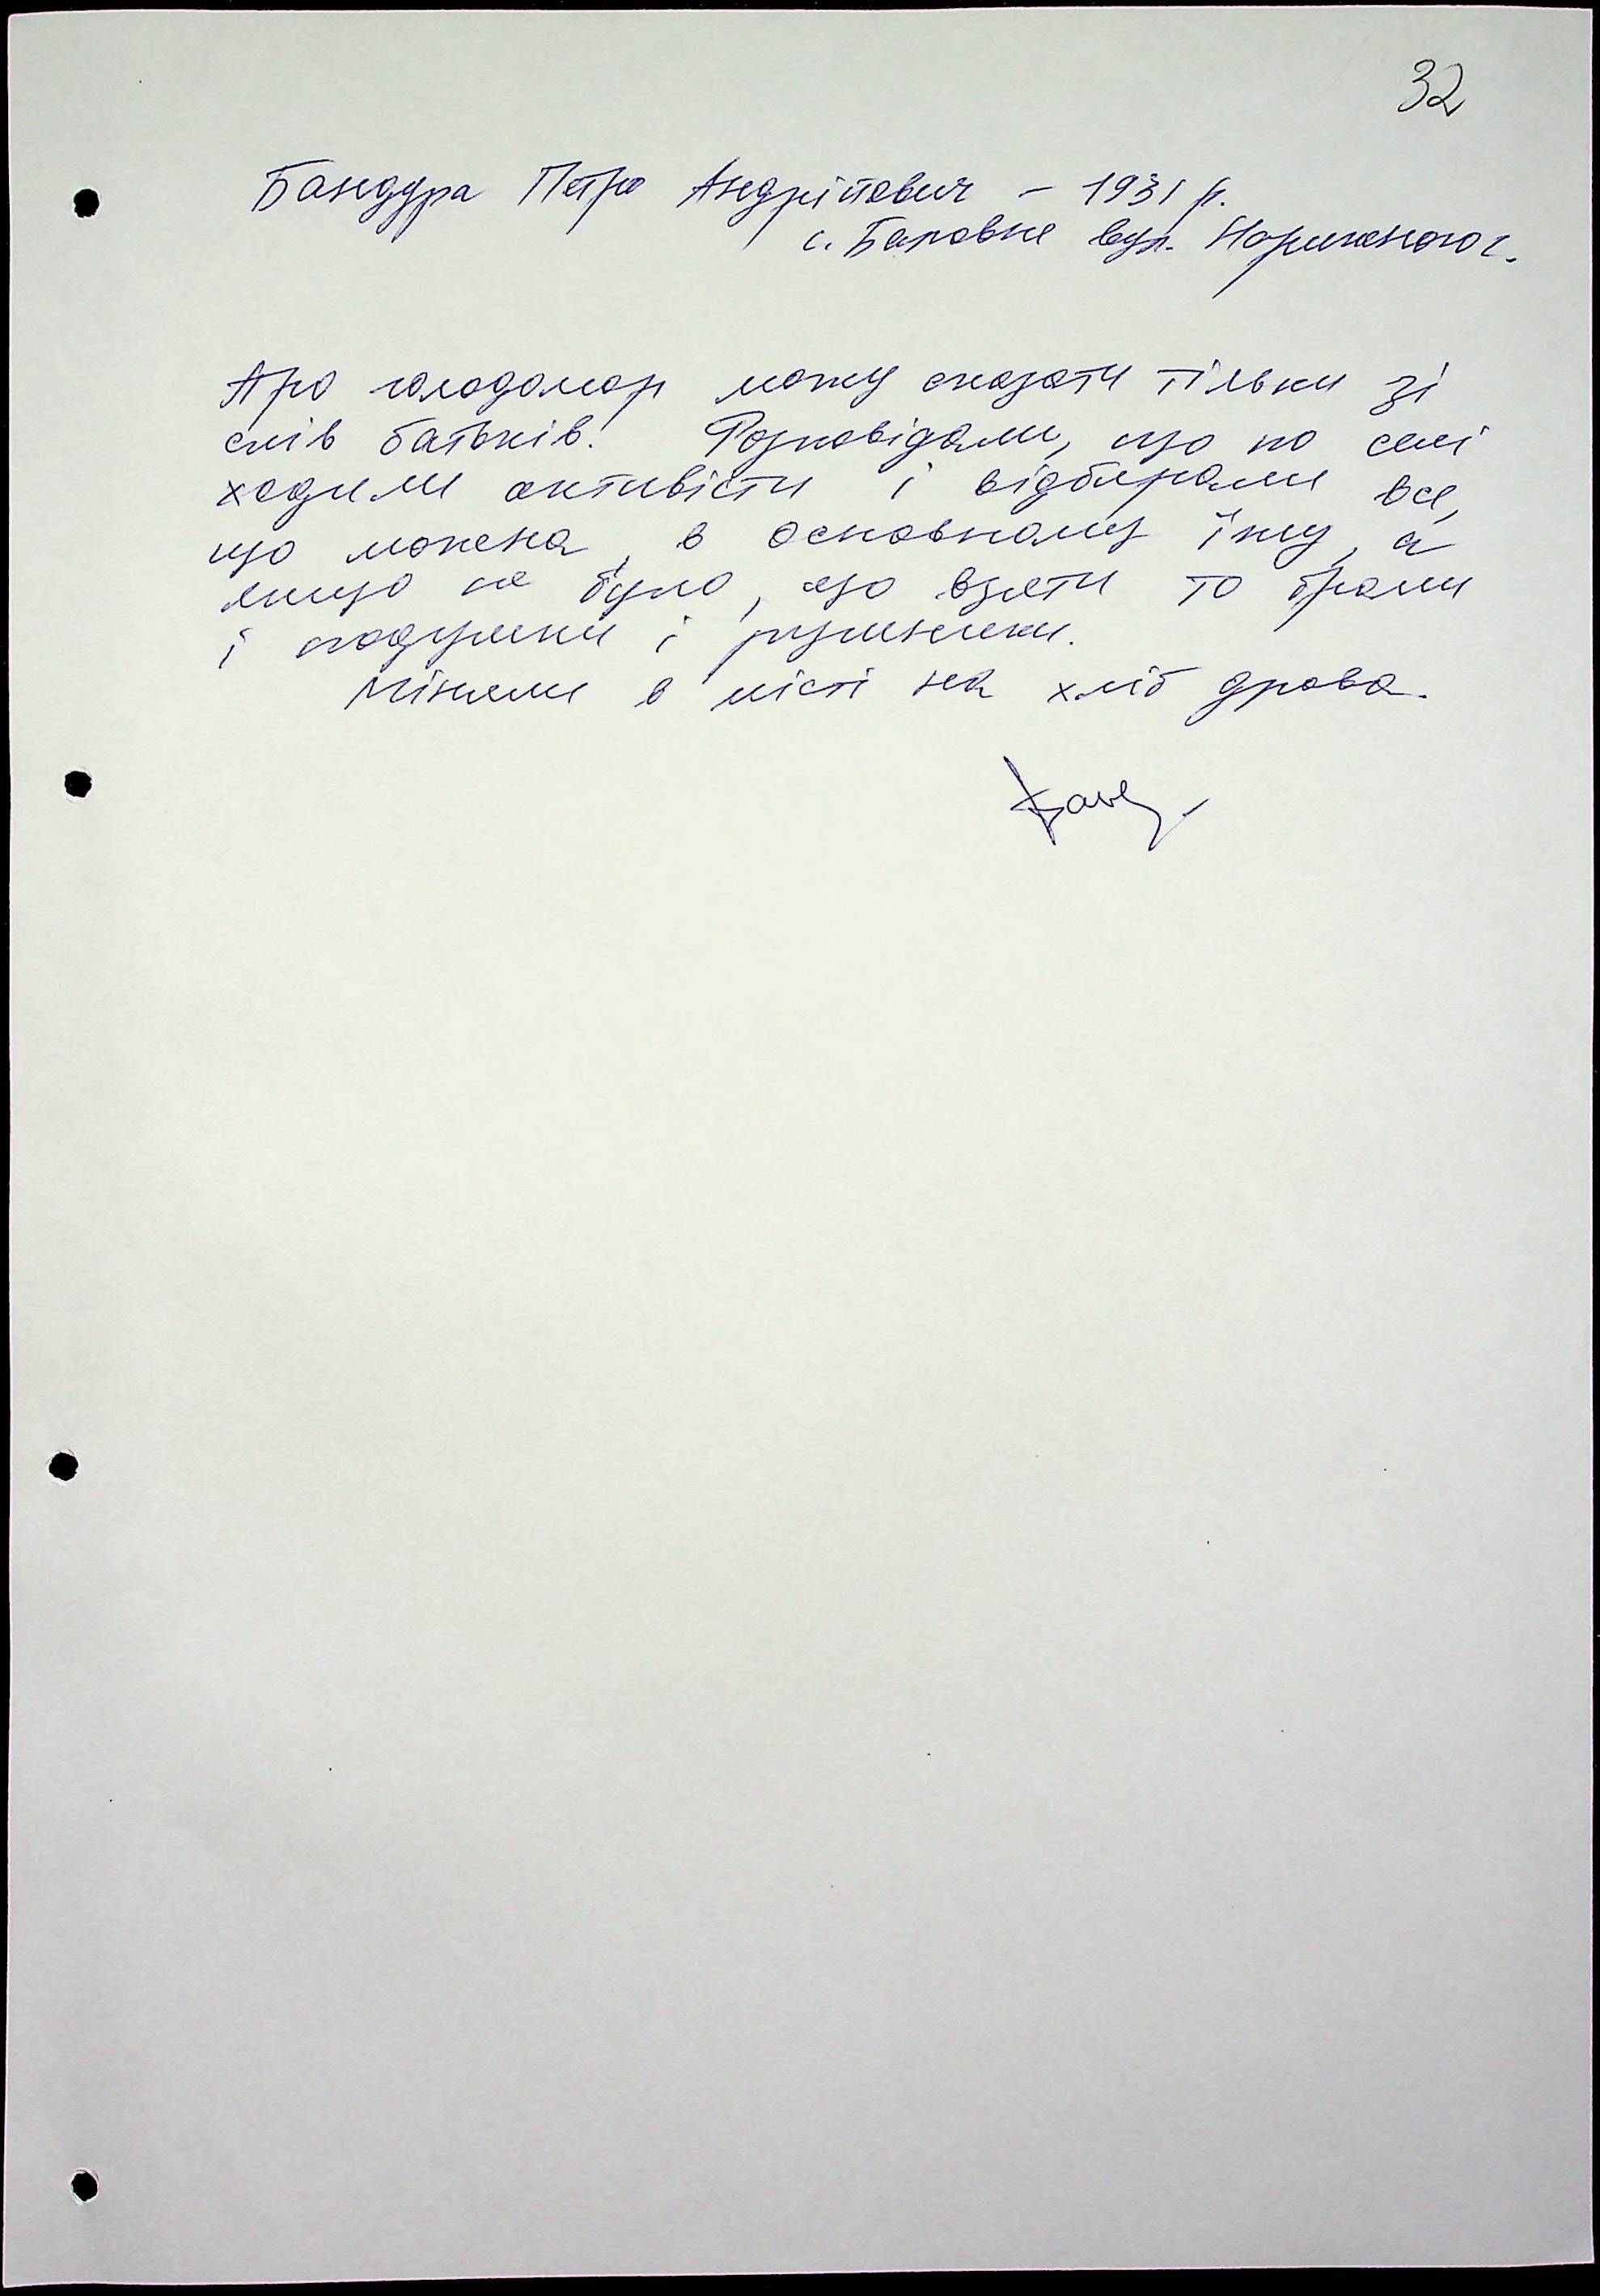 32
Бандура Петро Андрійович – 1931 р.
с. Баловне вул.
Про голодомор можу сказати тільки зі
слів батьків. Розповідали, що по селі
ходили активісти і відбирали все,
що можна, в основному їжу, а
якщо не було, що взяти то брали
і подушки і рушники.
Міняли в місті на хліб дрова.